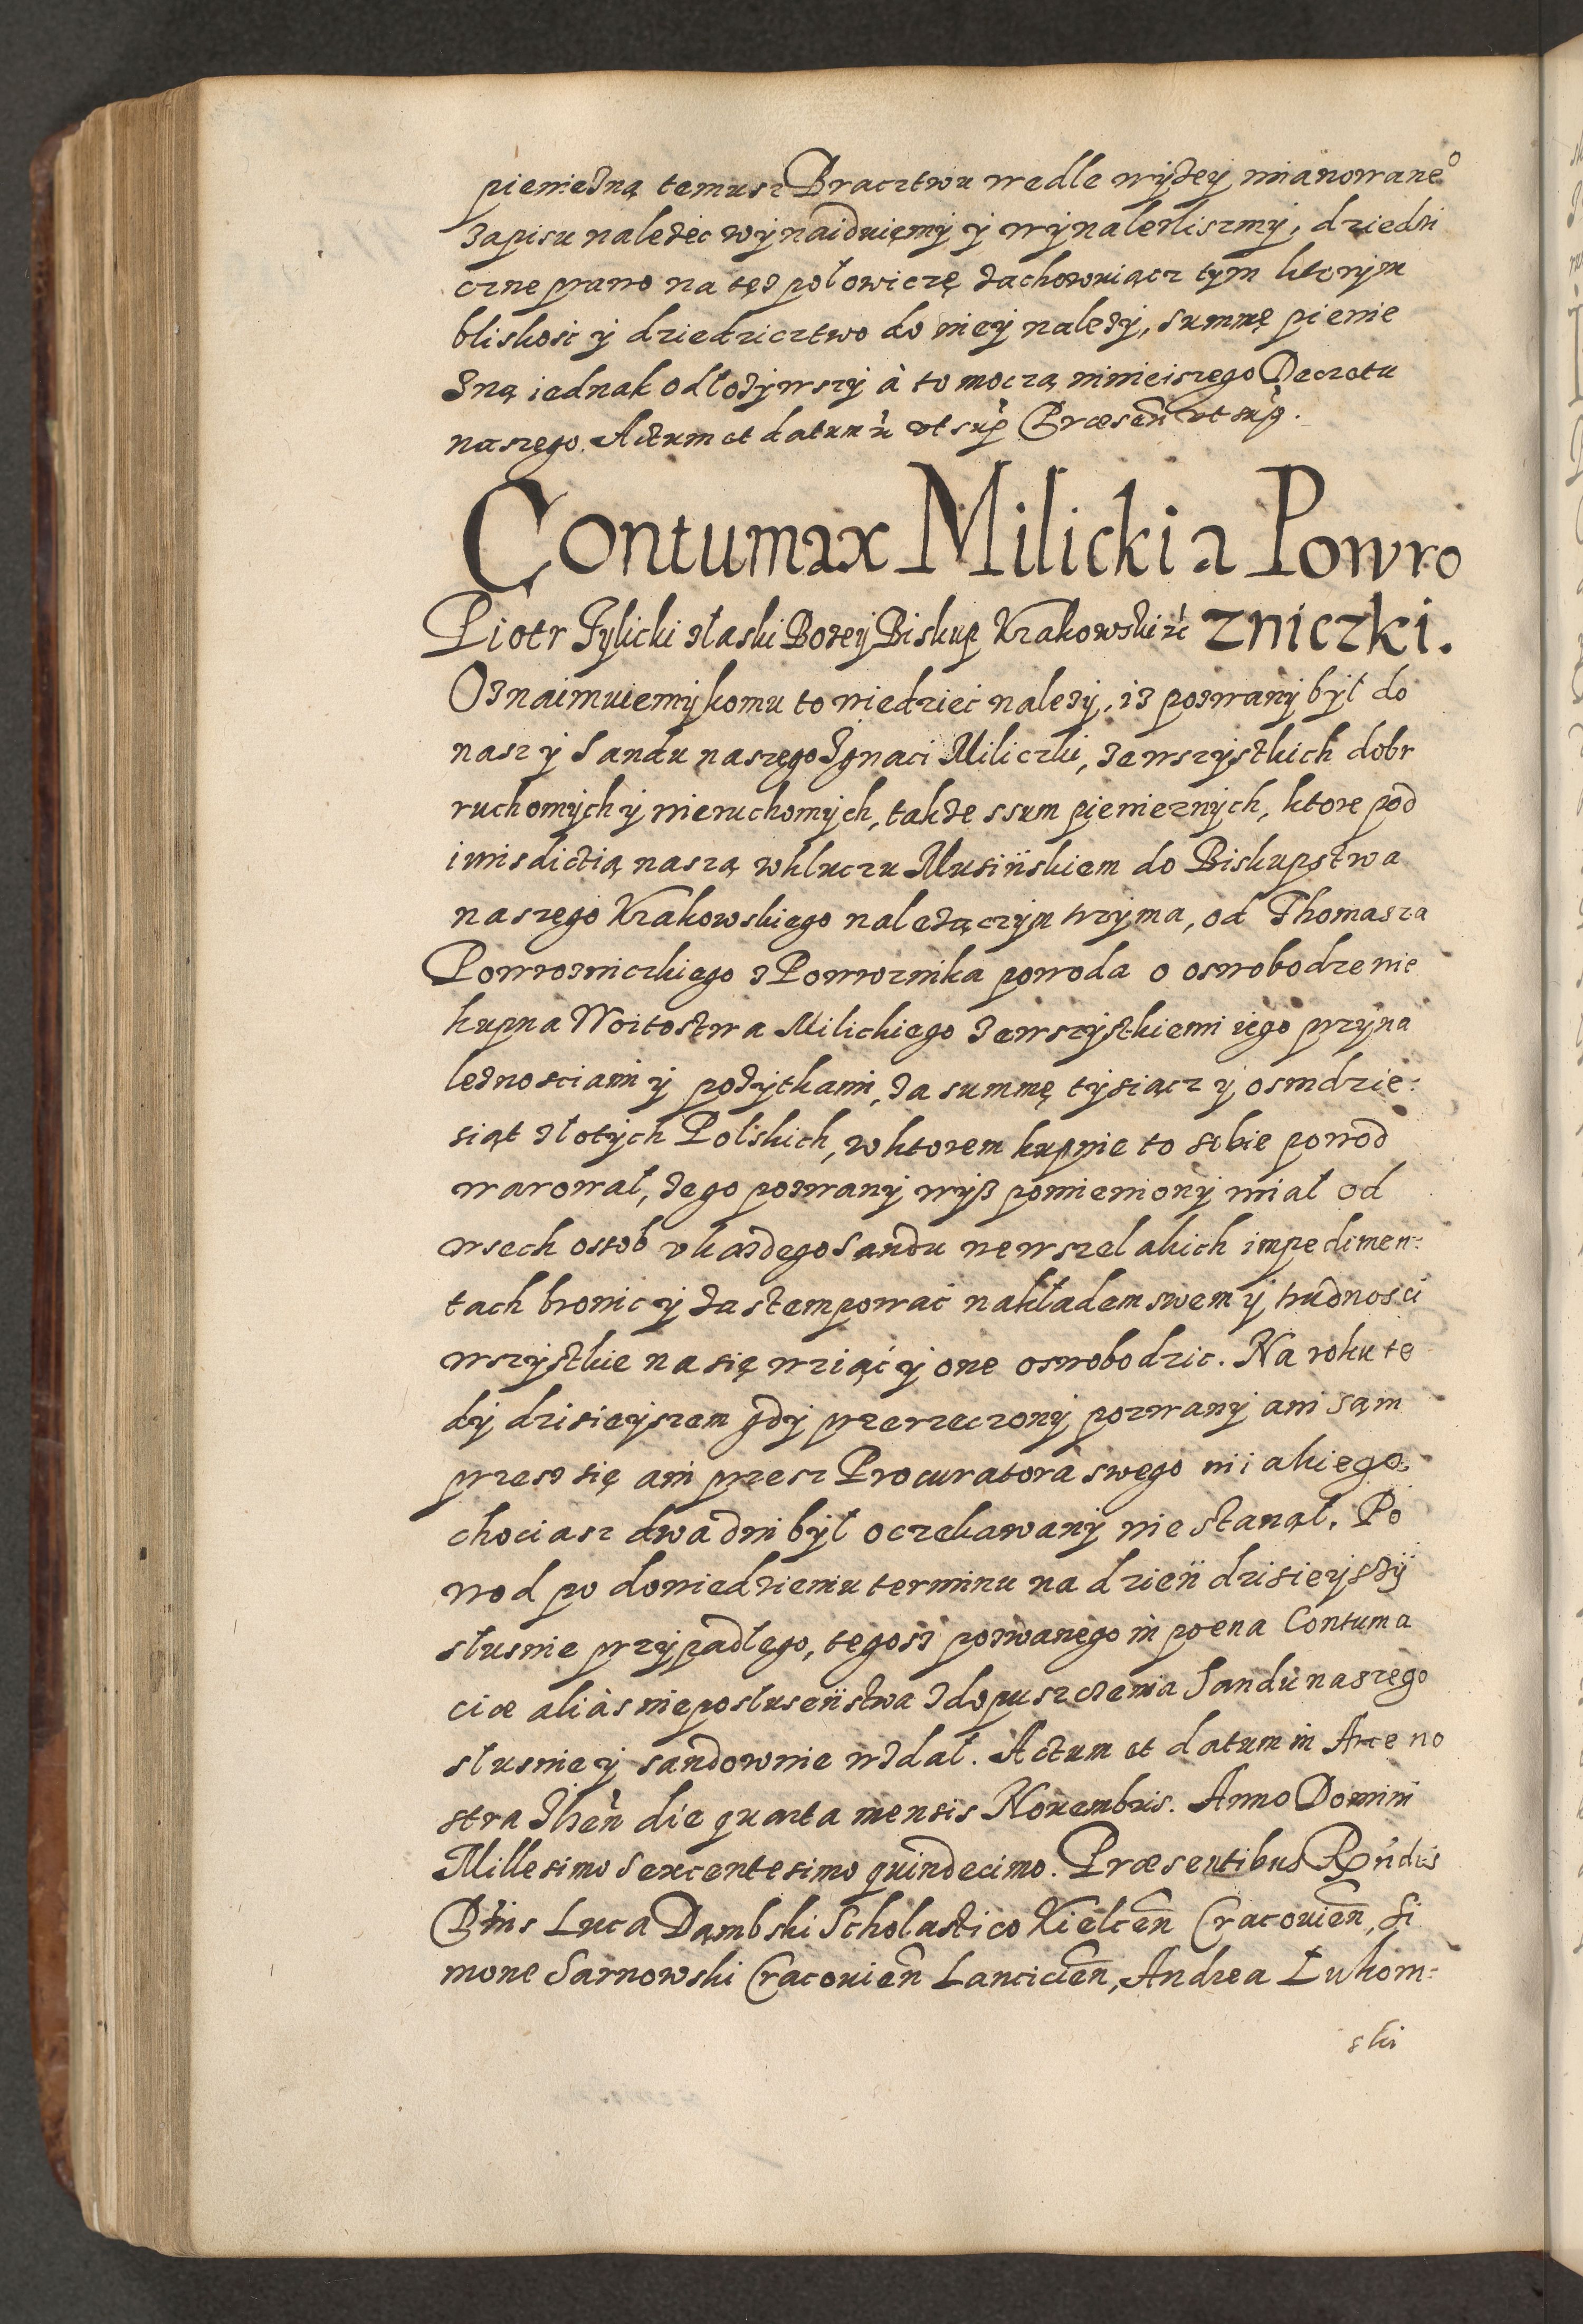 pienieżną temusz Bracztwu wedle wyżey mianowane°
zapisu należec wynaiduięmy y wynalezliszmy, dziedzi
czne prawo na tęż połowiczę zachowuiącz tym ktorym
bliskosc y dziedzicztwo do niey należy, summę pienie
żną iednak odłożywszy à to moczą ninieiszego Decretu
naszego. Actum et datum ù ut sup Præsen ut sup.
Contumax Milicki a Powro
zniczki.
Piotr Tylicki złaski Bożey Biskup Krakowski &c
Oznaimuiemy komu to wiedziec należy, iż pozwany był do
nasz y Sandu naszego Ignaci Miliczki, ze wszystkich dobr
ruchomych y nieruchomych, także ssum pienieznych, ktore pod
iurisdictią naszą w kluczu Musiinskiem do Biskupstwa
naszego Krakowskiego należączym trzyma, od Thomasza
Powrozniczkiego z Powroznika powoda o oswobodzenie
kupna Woitostwa Milickiego ze wszystkiemi iego przyna
leżnosciami y pożytkami, za summę tysiącz y osmdzie:
siąt złotych Polskich, w ktorem kupnie to sobie powod
warował, żego pozwany wyß pomieniony miał od
wsech osob u każdego Sandu we wszelakich impedimen:
tach bronic y zastempowac nakładem swem y trudnosci
wszystkie na się wziąć y one oswobodzic. Na roku te
dy dzisieyszem gdy przerzeczony pozwany ani sam
przesz się ani przesz Procuratora swego niiakiego
chociasz dwa dni był oczekawany nie stanął. Po
wod po dowiedzieniu terminu na dzień dzisieyszy
słusnie przypadłego, tegosz pozwanego in poena Contuma
ciæ aliàs nieposłuseństwa z dopuszczenia Sandu naszego
słusnie y sandownie wzdał. Actum et datum in Arce no
stra Ilżen die quarta mensis Nouembris. Anno Domini
Millesimo Sexcentesimo quindecimo. Præsentibus Rndis
Dnis Luca Dąmbski Scholastico Kielcen Cracouien, Si
mone Sarnowski Cracouien Lancicien, Andrea Łukom:
ski